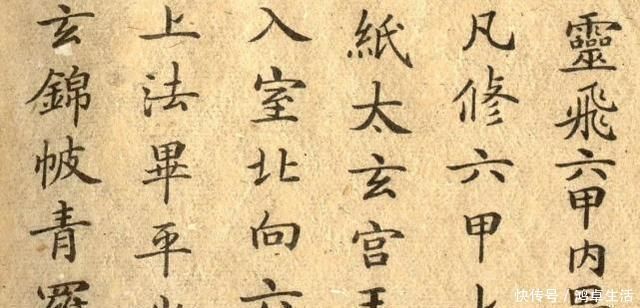 靈飛六甲內
凡修六甲
紙太玄宮玉
入室北向六
上法畢平
玄錦帔青羅
快传号／鸿卓生活